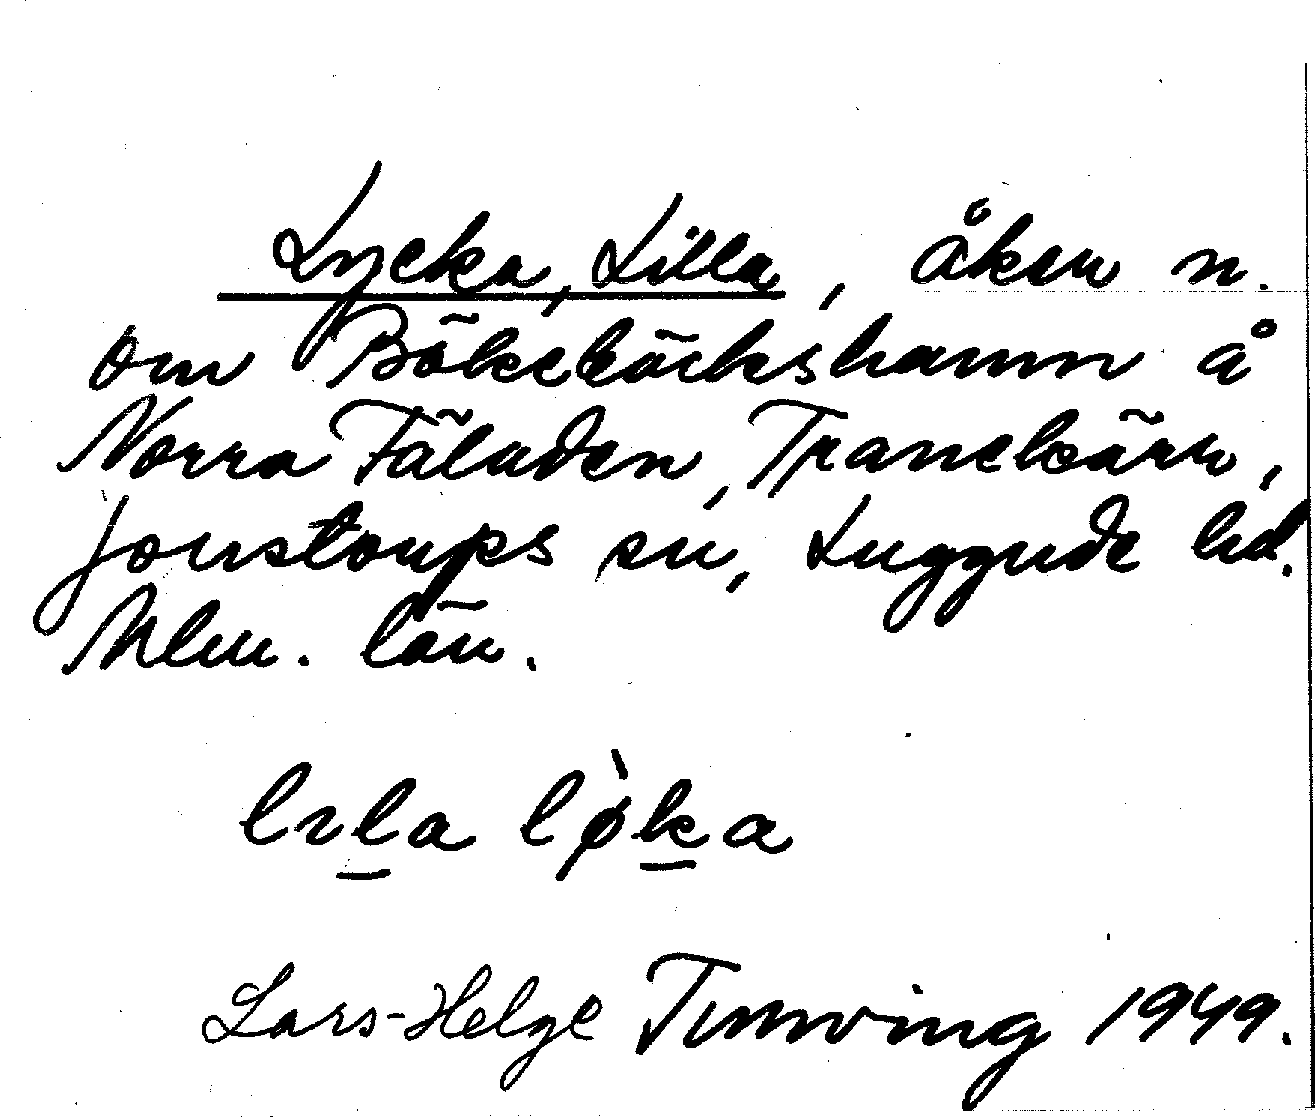 Lycka, Lilla, åker n.
om Bökebäckshamn å
Norra Fäladen, Tranekärr,
Jonstorps sn, Luggude hd.
Mlm. län.
lıla lø̀ka
Lars-Helge Tunving 1949.